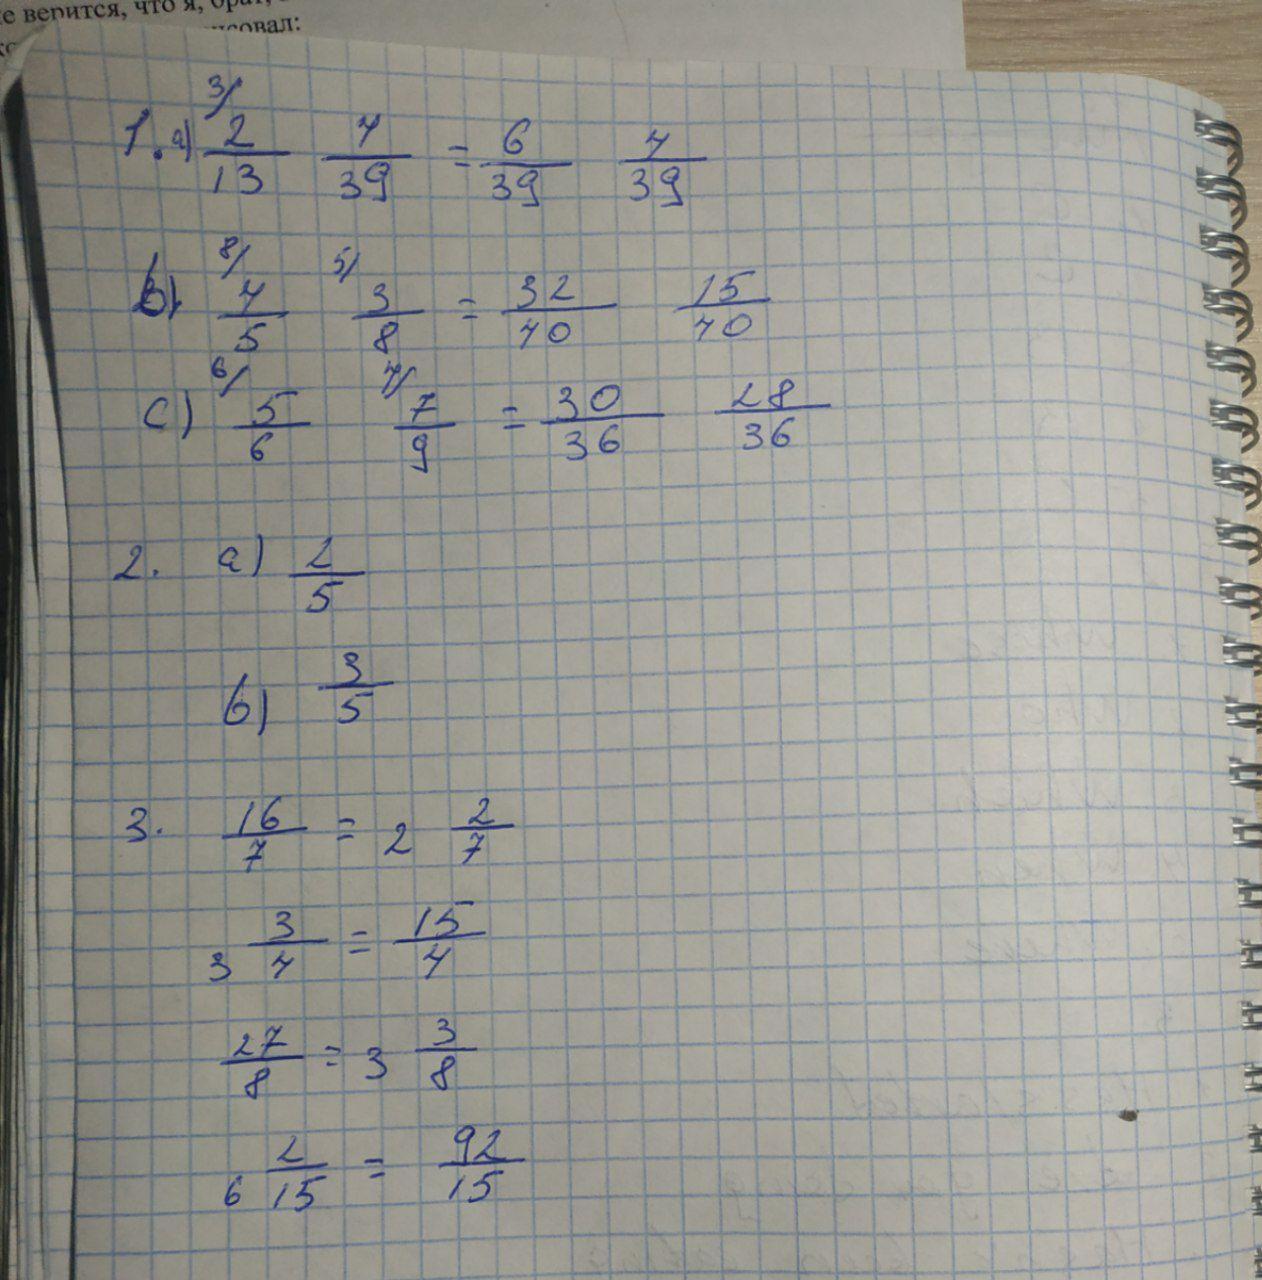 е верится, что я, брат,
совал:
1. a) 3/ 2/13 4/39 = 6/39 4/39
b) 8/ 4/5 5/ 3/8 = 32/40 15/40
c) 6/ 5/6 4/ 7/9 = 30/36 28/36
2. a) 2/5
b) 3/5
3. 16/7 = 2 2/7
3 3/4 = 15/4
27/8 = 3 3/8
6 2/15 = 92/15